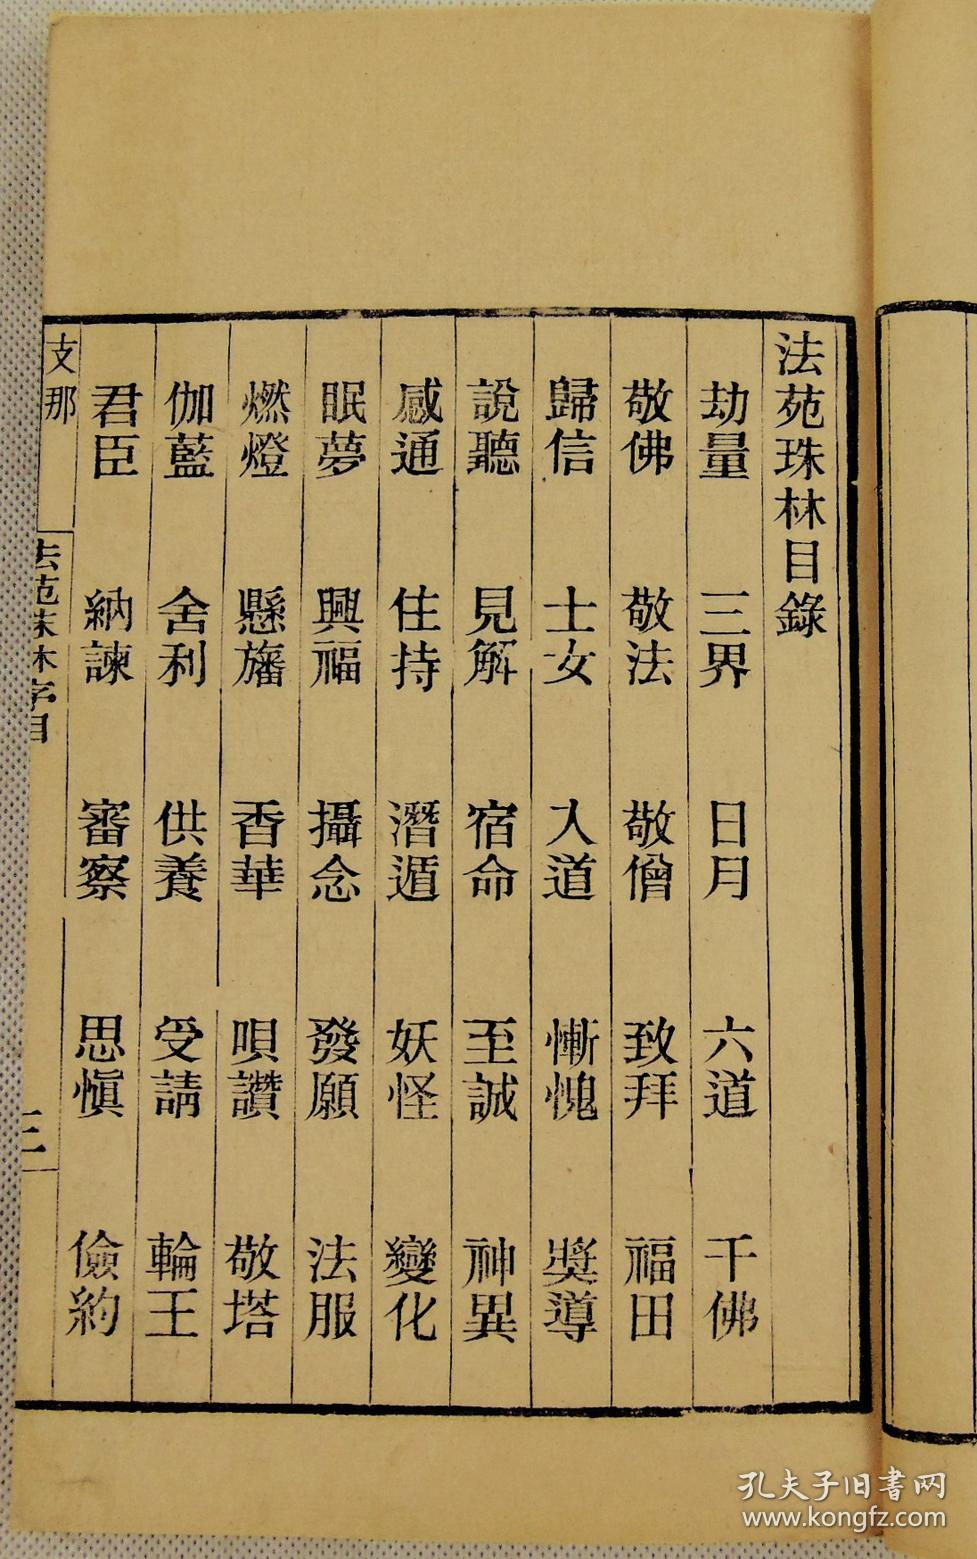 法苑珠林目錄
劫量 三界 日月 六道 千佛
敬佛 敬法 敬僧 致拜 福田
歸信 士女 入道 慚愧 奬導
說聽 見解 宿命 至誠 神異
感通 住持 潛遁 妖怪 變化
眠夢 興福 攝念 發願 法服
燃燈 懸旛 香華 唄讚 敬塔
伽藍 舍利 供養 受請 輪王
君臣 納諫 審察 思慎 儉約
支那
法苑珠林 序目
三
孔夫子旧書网
www.kongfz.com